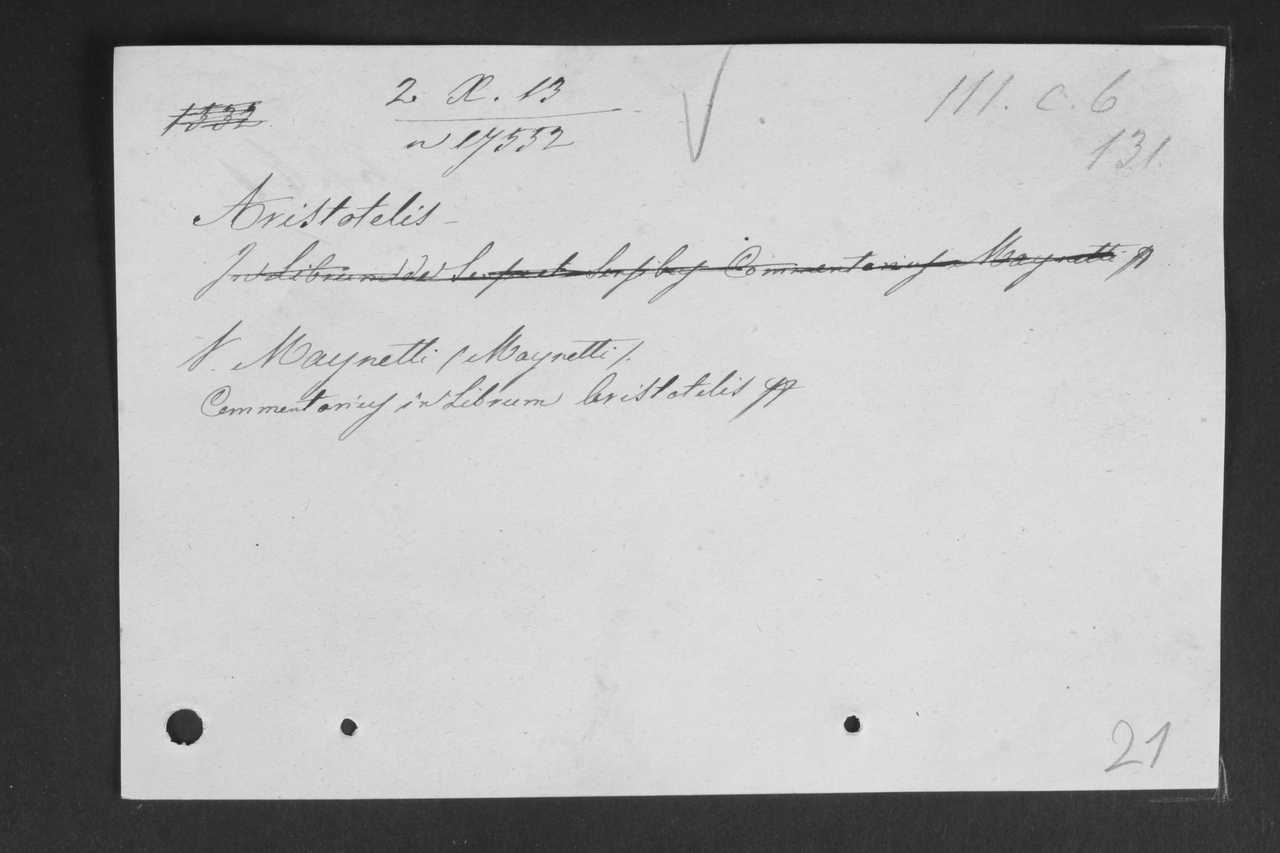 1332
2. X. 13
17532
111. c. 6
131.
Aristotelis -
In Librum de Sensu et Commentarius Maynetti
V. Maynetti (Maynetti).
Commentarius in Librum Aristotelis
21